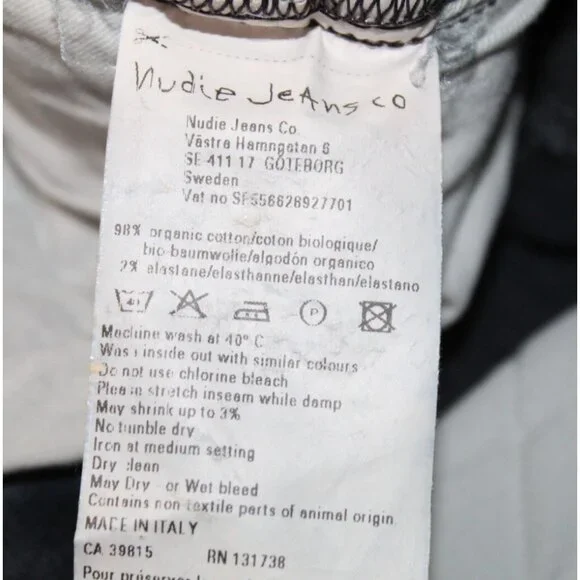 Nudie Jeans co
Nudie Jeans Co.
Västra Hamngatan 6
SE-411 17 GÖTEBORG
Sweden
Vat no SE556628927701
98% organic cotton/coton biologique/
bio-baumwolle/algodón organico
2% elastane/elasthanne/elasthan/elastano
40 P
Machine wash at 40° C
Wash inside out with similar colours
Do not use chlorine bleach
Please stretch inseam while damp
May shrink up to 3%
No tumble dry
Iron at medium setting
Dry clean
May Dry - or Wet bleed
Contains non-textile parts of animal origin
MADE IN ITALY
CA 39815 RN 131738
Pour préserver